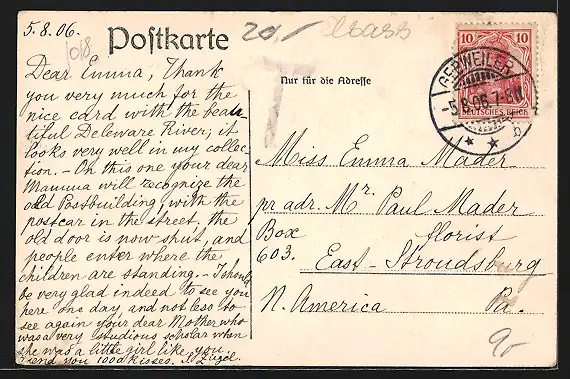 5.8.06.
10/8
Postkarte
20,-
Elsass
Nur für die Adresse
T
10 10
DEUTSCHES REICH
GEBWEILER
-5.8.06.7-8N
b
Dear Emma, Thank
you very much for the
nice card with the beau-
tiful Deleware River; it
looks very well in my collec-
tion. - On this one your dear
Mamma will recognize the
old Postbuilding, with the
postcar in the street. the
old door is now shut, and
people enter where the
children are standing. - I should
be very glad indeed to see you
here one day, and not less to
see again your dear Mother who
was a very studious scholar when
she was a little girl like you.
I send you 1000 kisses.
Miss Emma Mader
pr adr. Mr. Paul Mader
Box florist
603. East-Stroudsburg
N. America Pa.